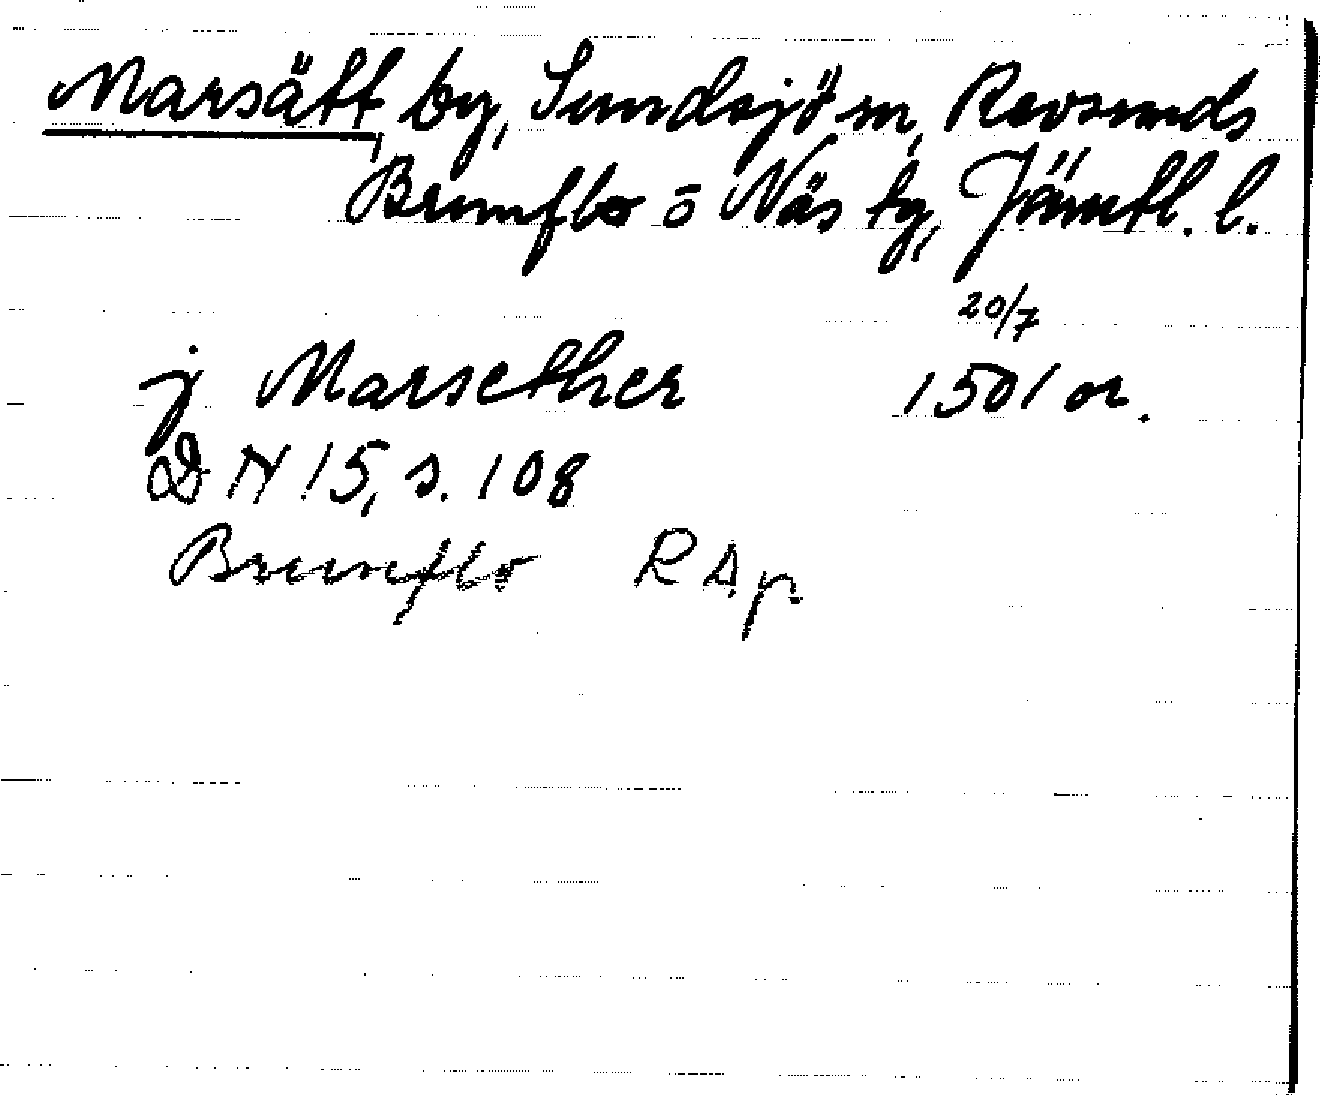 Marsätt by, Sundsjö sn, Revsunds
Brunflo o Näs tg, Jämtl. l.
20/7
j Marsether 1501 or.
DN 15, s. 108
Brunflo RAp